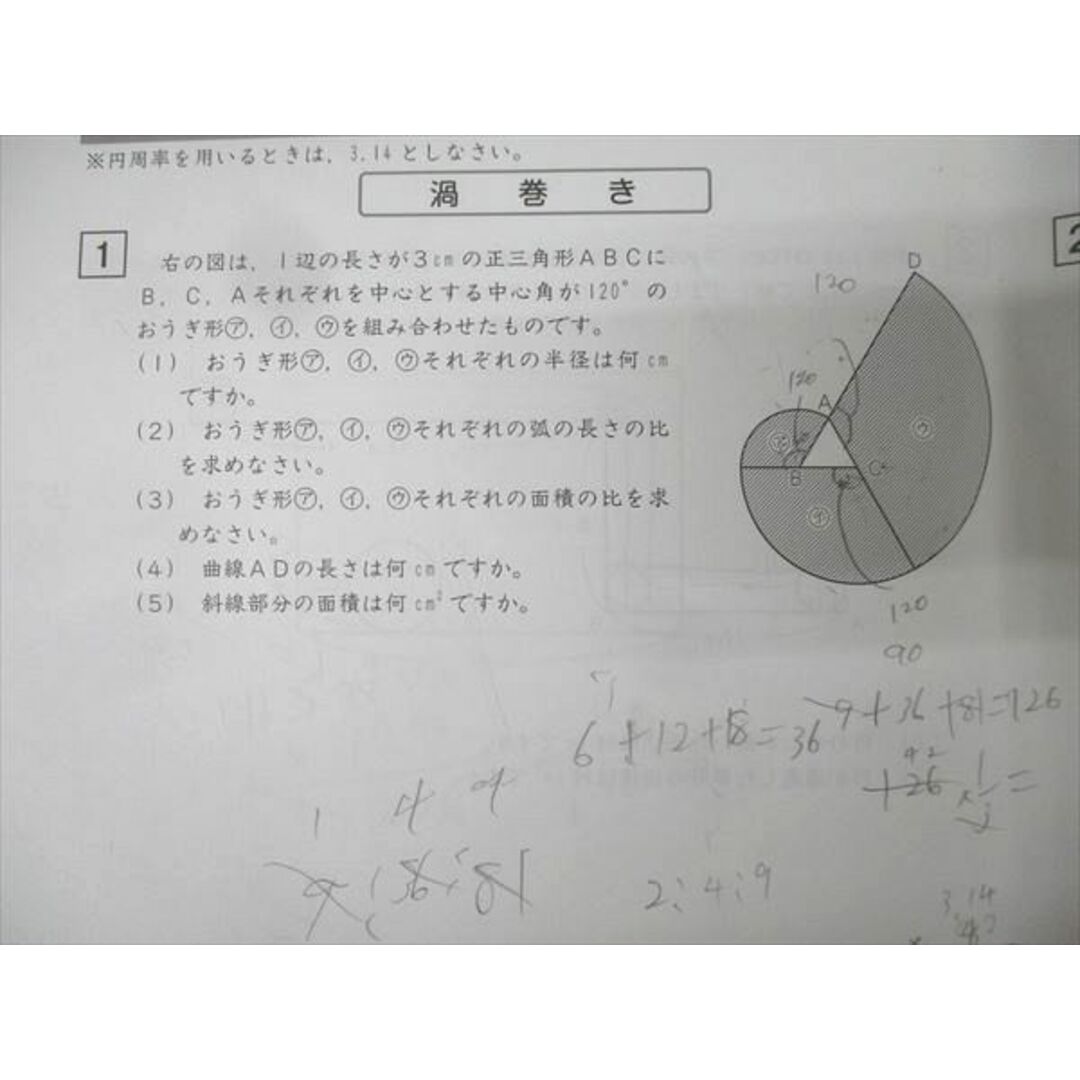 ※円周率を用いるときは，3.14としなさい。
渦巻き
1
2
右の図は，1辺の長さが3cmの正三角形ABCに
B，C，Aそれぞれを中心とする中心角が120°の
おうぎ形㋐，㋑，㋒を組み合わせたものです。
(1) おうぎ形㋐，㋑，㋒それぞれの半径は何cm
ですか。
(2) おうぎ形㋐，㋑，㋒それぞれの弧の長さの比
を求めなさい。
(3) おうぎ形㋐，㋑，㋒それぞれの面積の比を求
めなさい。
(4) 曲線ADの長さは何cmですか。
(5) 斜線部分の面積は何cm²ですか。
D
120
120
A
㋐
㋒
B
C
㋑
120
90
6+12+18=36
9+36+81=126
42
126×1/3=
1 4 9
9:36:81
2:4:9
3.14